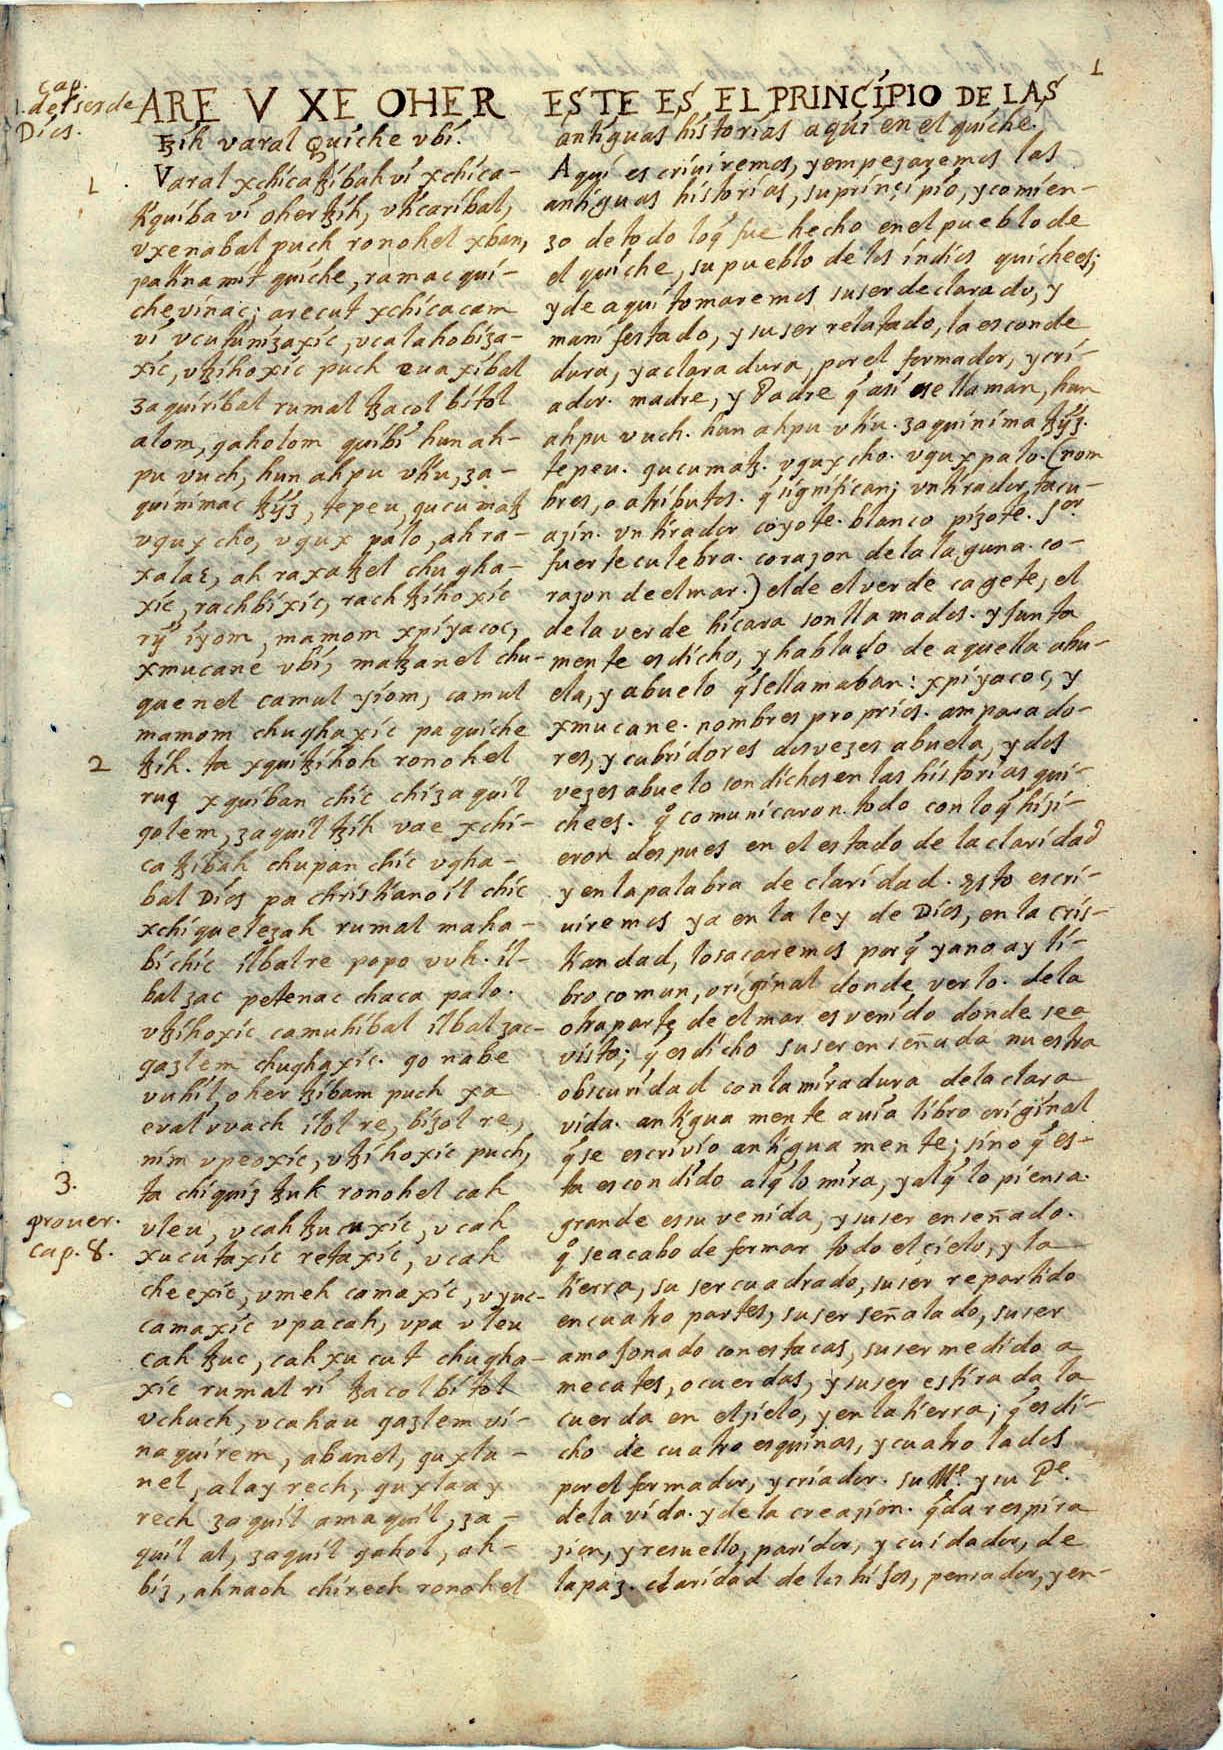 1
cap.
1. del ser de
Dios.
ARE V XE OHER
tzíh varal Quíche vbí.
1
Varal xchícatzíbah ví xchíca-
tíquíba ví oher tzíh, vtícaríbal,
vxenabal puch ronohel xban,
pa tínamít quíche, ramac quí-
che vínac; arecut xchícacam
ví vcutunízaxíc, vcalahobíza-
xíc, vtzíhoxíc puch euaxíbal
zaquíríbal rumal tzacol bítol
alom, qaholom quíbí hun ah-
pu vuch, hun ahpu vtíu, za-
quí nímac tzÿz, tepeu, qucumatz
vqux cho, vqux palo, ah ra-
xa lac, ah raxa tzel chughа-
xíc, rachbíxíc, rach tzíhoxíc
rÿ íyom, mamom xpíyacoc,
xmucane vbí, matzanel chu-
quenel camul yíom, camul
mamom chughaxíc pa quíche
2
tzíh. ta xquítzíhoh ronohel
ruq xquíban chíc chí zaquíl
qolem, zaquíl tzíh vae xchí-
ca tzíbah chupan chíc vgha-
bal Díos pa chrístíanoíl chíc
xchíquelezah rumal maha-
bíchíc ílbal re popo vuh. íl-
bal zac petenac chaca palo.
vtzíhoxíc camuhíbal ílbal zac-
qazlem chughaxíc. qo nabe
vuhíl, oher tzíbam puch xa
eual vvach ílol re, bízol re,
ním vpeoxíc, vtzíhoxíc puch,
3.
ta chíquíz tzuk ronohel cah
prouer.
cap. 8.
vleu, vcah tzucuxíc, vcah
xucutaxíc retaxíc, vcah
cheexíc, vmeh camaxíc, vyuc-
camaxíc vpa cah, vpa vleu
cah tzuc, cah xucut chugha-
xíc rumal rí tzacol bítol
vchuch, vcahau qazlem ví-
naquírem, abanel, quxla-
nel, alay rech, quxlaay
rech zaquíl amaquíl, za-
quíl al, zaquíl qahol, ah-
bíz, ahnaoh chírech ronohel
ESTE ES EL PRINCIPIO DE LAS
antíguas hístorías aquí en el quíche.
Aquí escríuíremos, y empezaremos las
antíguas hístorías, su príncípío, y comíen-
zo de todo loq̃ fue hecho en el pueblo de
el quíche, su pueblo de los índíos quíchees;
y de aquí tomaremos su ser declarado, y
manífestado, y su ser relatado, la esconde
dura, y aclaradura, por el formador, y crí-
ador. madre, y Padre q̃ así se llaman, hun
ahpu vuch. hun ahpu vtíu. zaquí níma tzÿz.
tepeu. qucumatz. vqux cho. vqux palo. (nom
bres, o atríbutos. q̃ sígnífícan; vn tírador tacu-
azín. vn tírador coyote. blanco pízote. Sor
fuerte culebra. corazon de la laguna. co-
razon de el mar.) el de el verde cagete, el
de la verde hícara son llamados. y junta
mente es dícho, y hablado de aquella abu-
ela, y abuelo q̃ se llamaban: xpíyacoc, y
xmucane. nombres propríos. amparado-
res, y cubrídores dos vezes abuela, y dos
vezes abuelo son díchos en las hístorías quí-
chees. q̃ comunícaron todo con loq̃ hízí-
eron despues en el estado de la clarídad
y en la palabra de clarídad. Esto escrí-
uíremos ya en la ley de Díos, en la crís-
tíandad, lo sacaremos porq̃ ya no ay lí-
bro comun, orígínal donde verlo. de la
otra parte de el mar es venído donde sea
vísto; q̃ es dícho su ser enseñada nuestra
obscurídad con la míradura de la clara
vída. antíguamente auía líbro orígínal
q̃ se escrívío antíguamente; síno q̃ es-
ta escondído alq̃ lo míra, y alq̃ lo píensa.
grande es su venída, y su ser enseñado.
q̃ se acabo de formar todo el cíelo, y la
tíerra, su ser cuadrado, su ser repartído
en cuatro partes, su ser señalado, su ser
amojonado con estacas, su ser medído a
mecates, o cuerdas, y su ser estírada la
cuerda en el zíelo, y en la tíerra; q̃ es dí-
cho de cuatro esquínas, y cuatro lados
por el formador, y críador. su Me. y su Pe.
de la vída. y de la creazíon. q̃ da respíra
zíon, y resuello, parídor, y cuídador, de
la paz. clarídad de los híjos, pensador, y en-